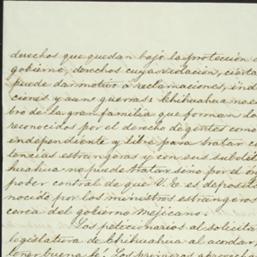 derechos que quedan bajo la proteccion
gobierno, derechos cuya violacion, cierta
puede dar motivo a reclamaciones, ind
ciones y aun guerras: Chihuahua
bro de la gran familia que forman lo
reconocidos por el derecho de gentes como
independiente y libre para tratar
tencias estrangeras y con sus subdit
huahua no puede tratar sino por el
poder central de que V. E. es deposit
nocido por los ministros estrangeros
cerca del gobierno mejicano.
Los peticionarios al solicita
legislatura de Chihuahua al acordar